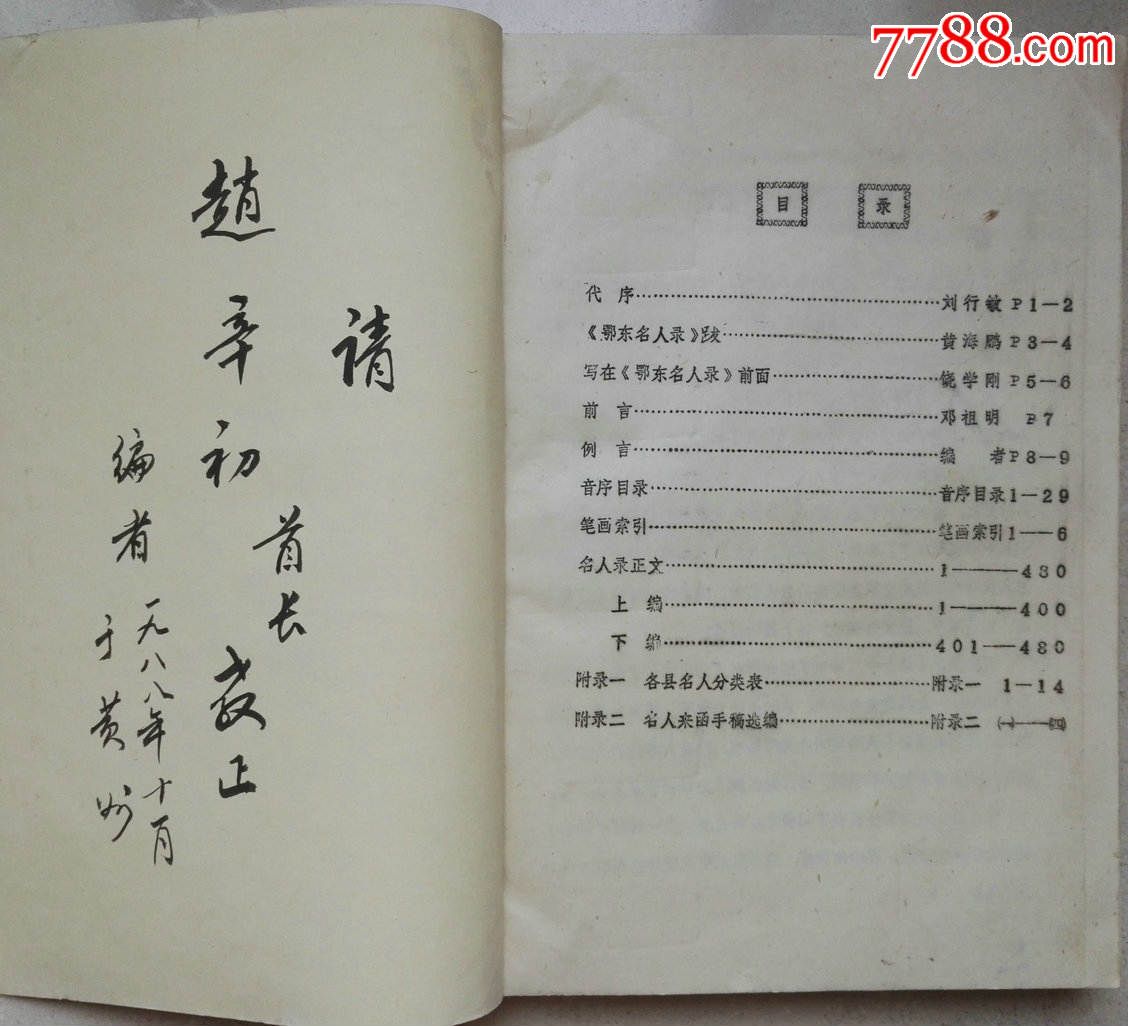 7788.com
请
趙辛初
首长
教正
编者
一九八八年十月
于黄州
目 录
代 序……刘行敏 P1—2
《鄂东名人录》跋……黄海鹏 P3—4
写在《鄂东名人录》前面……饶学刚 P5—6
前 言……邓祖明 P7
例 言……编 者 P8—9
音序目录……音序目录1—29
笔画索引……笔画索引1——6
名人录正文……1———480
上 编……1———400
下 编……401——480
附录一 各县名人分类表……附录一 1—14
附录二 名人来函手稿选编……附录二 (一)——(四)